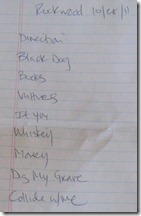 Rockwood 10/28/11
Direction
Black Dog
Books
Vultures
If you
Whiskey
Money
Dig My Grave
Collide w/me